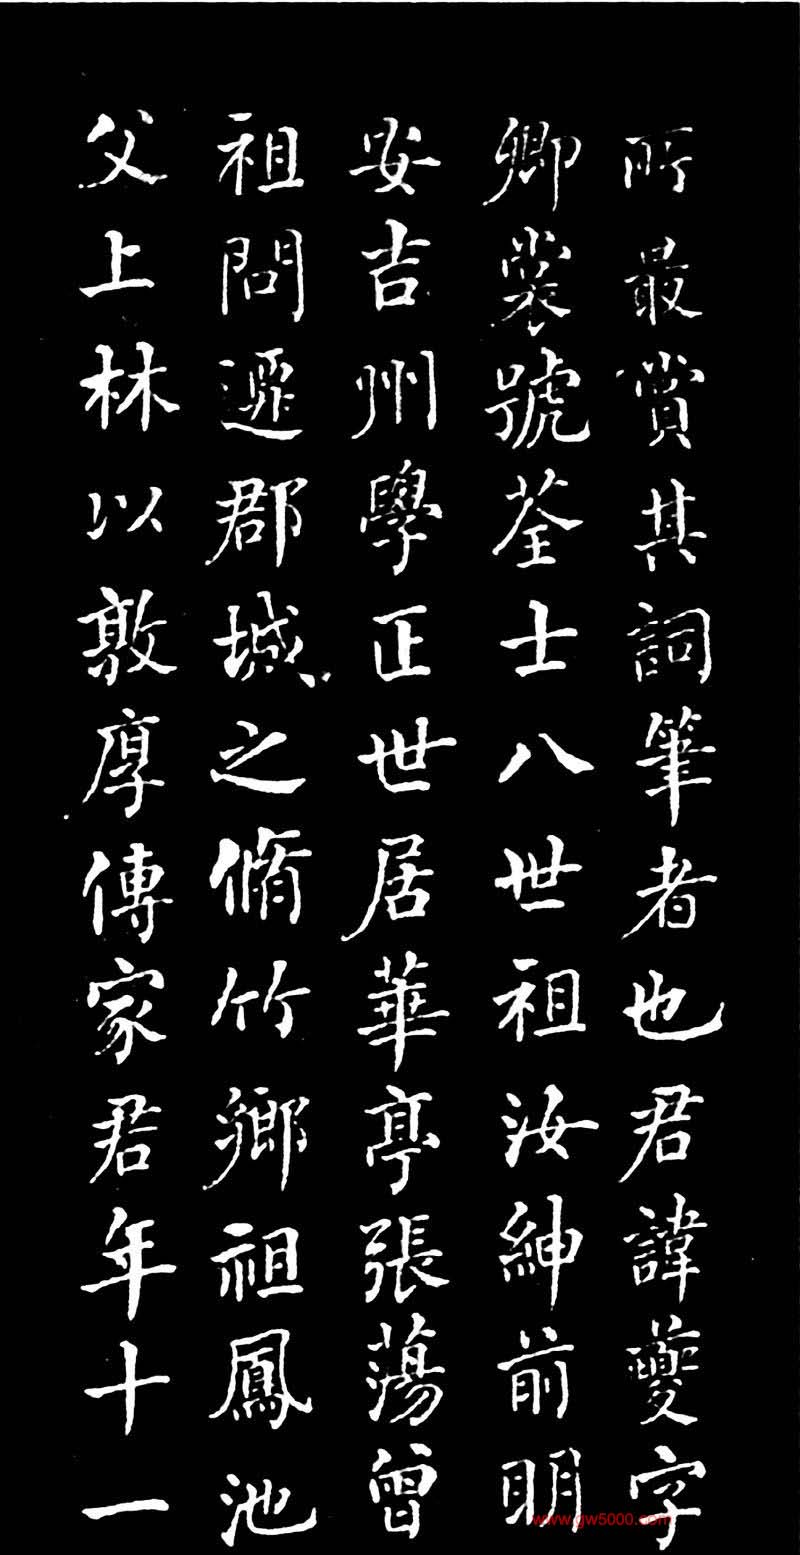 所最賞其詞筆者也君諱夔字
卿裳號荃士八世祖汝紳前明
安吉州學正世居華亭張蕩曾
祖問遲郡城之脩竹鄉祖鳳池
父上林以敦厚傳家君年十一
www.gw5000.com